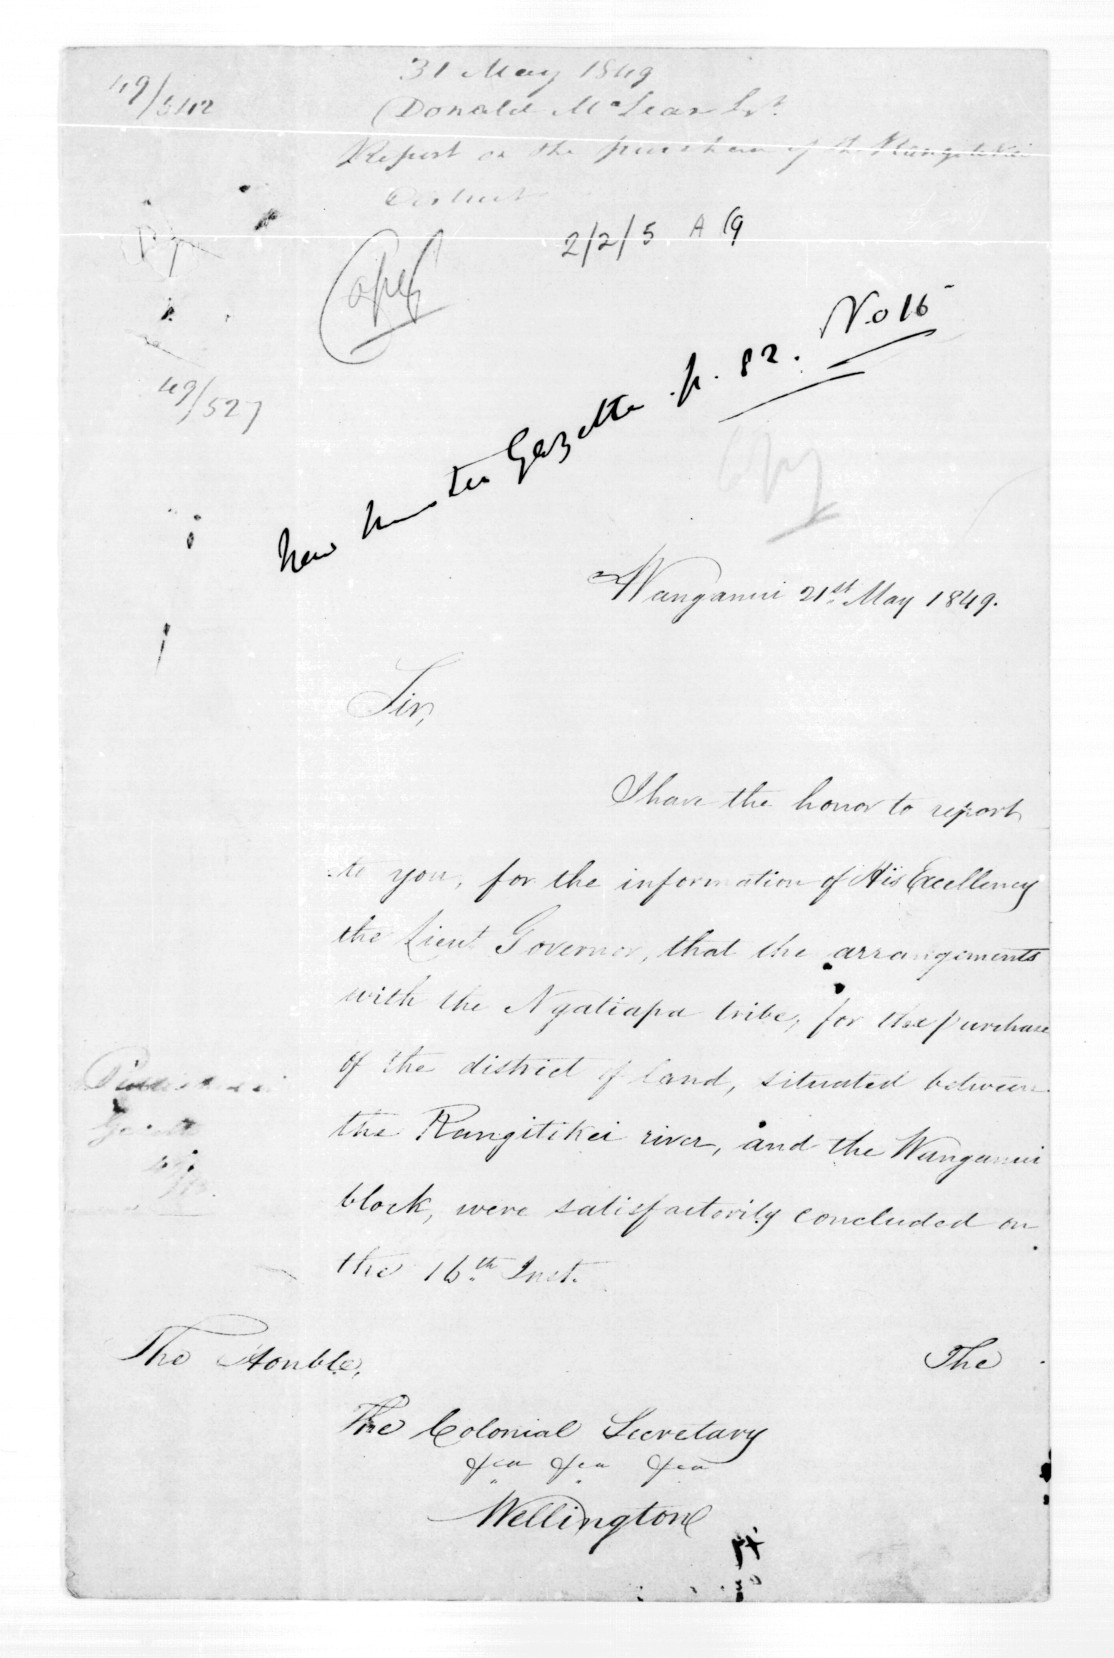 49/512
31 May 1849
Donald McLean
Report on the purchase of the Rangitikei
District
2/2/5 A (9
Copy
New Munster Gazette p. 82. No 16
49/527
Copy
Wanganui 21st May 1849.
Sir,
I have the honor to report
to you, for the information of His Excellency
the Lieut Governor, that the arrangements
with the Ngatiapa tribe, for the purchase
of the district of land, situated between
the Rangitikei river, and the Wanganui
block, were satisfactorily concluded on
the 16th Inst.
The Honble,
The
The Colonial Secretary
&ca &ca &ca
Wellington